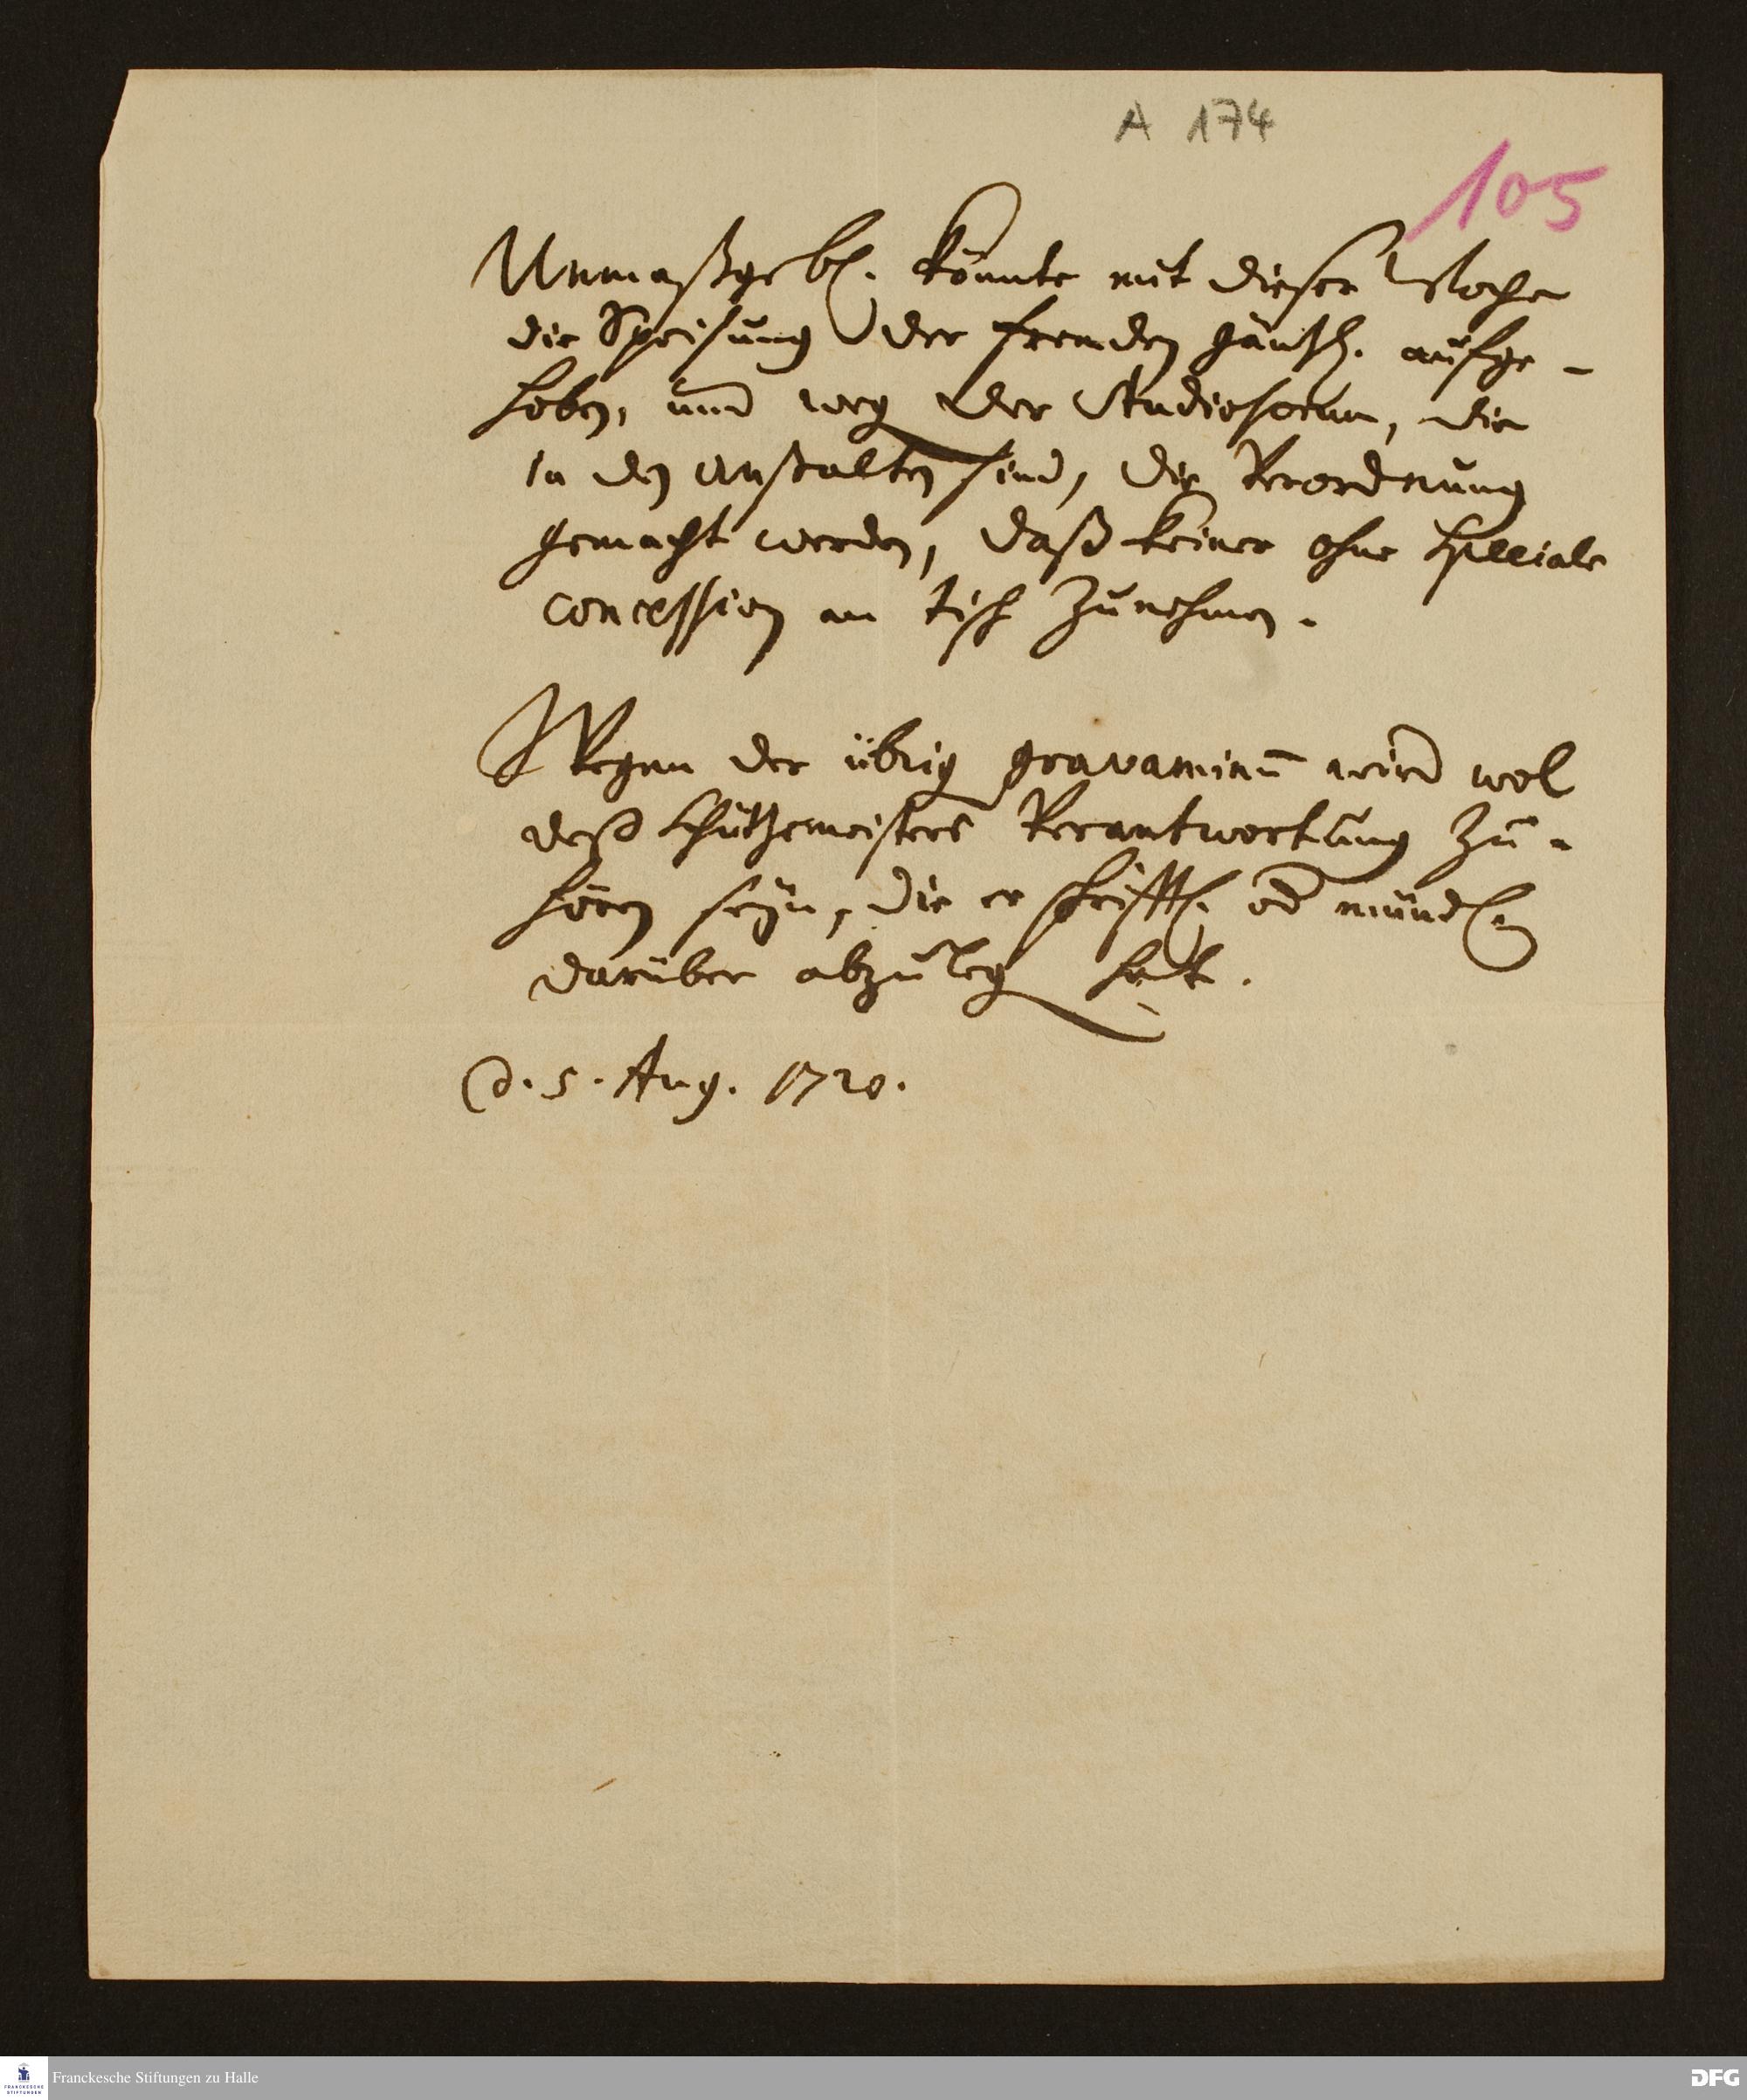 A 174
105
Unmaßgebl. könte mit dieser Woche
die Speisung der fremden gäntzl. aufge-
hoben, und weg der Studiosorum, die
in den Anstalten sind, die Verordnung
gemacht werden, daß keiner ohne speciale
concession an tisch zunehmen.
Wegen der übrig gravaminū wird wol
deß Verantwortung zu-
hören seyn, die er schrifftl. od mündl.
darüber abzuleg hat.
d. 5. Aug. 1720.
Franckesche Stiftungen zu Halle
FRANCKESCHE
STIFTUNGEN
DFG